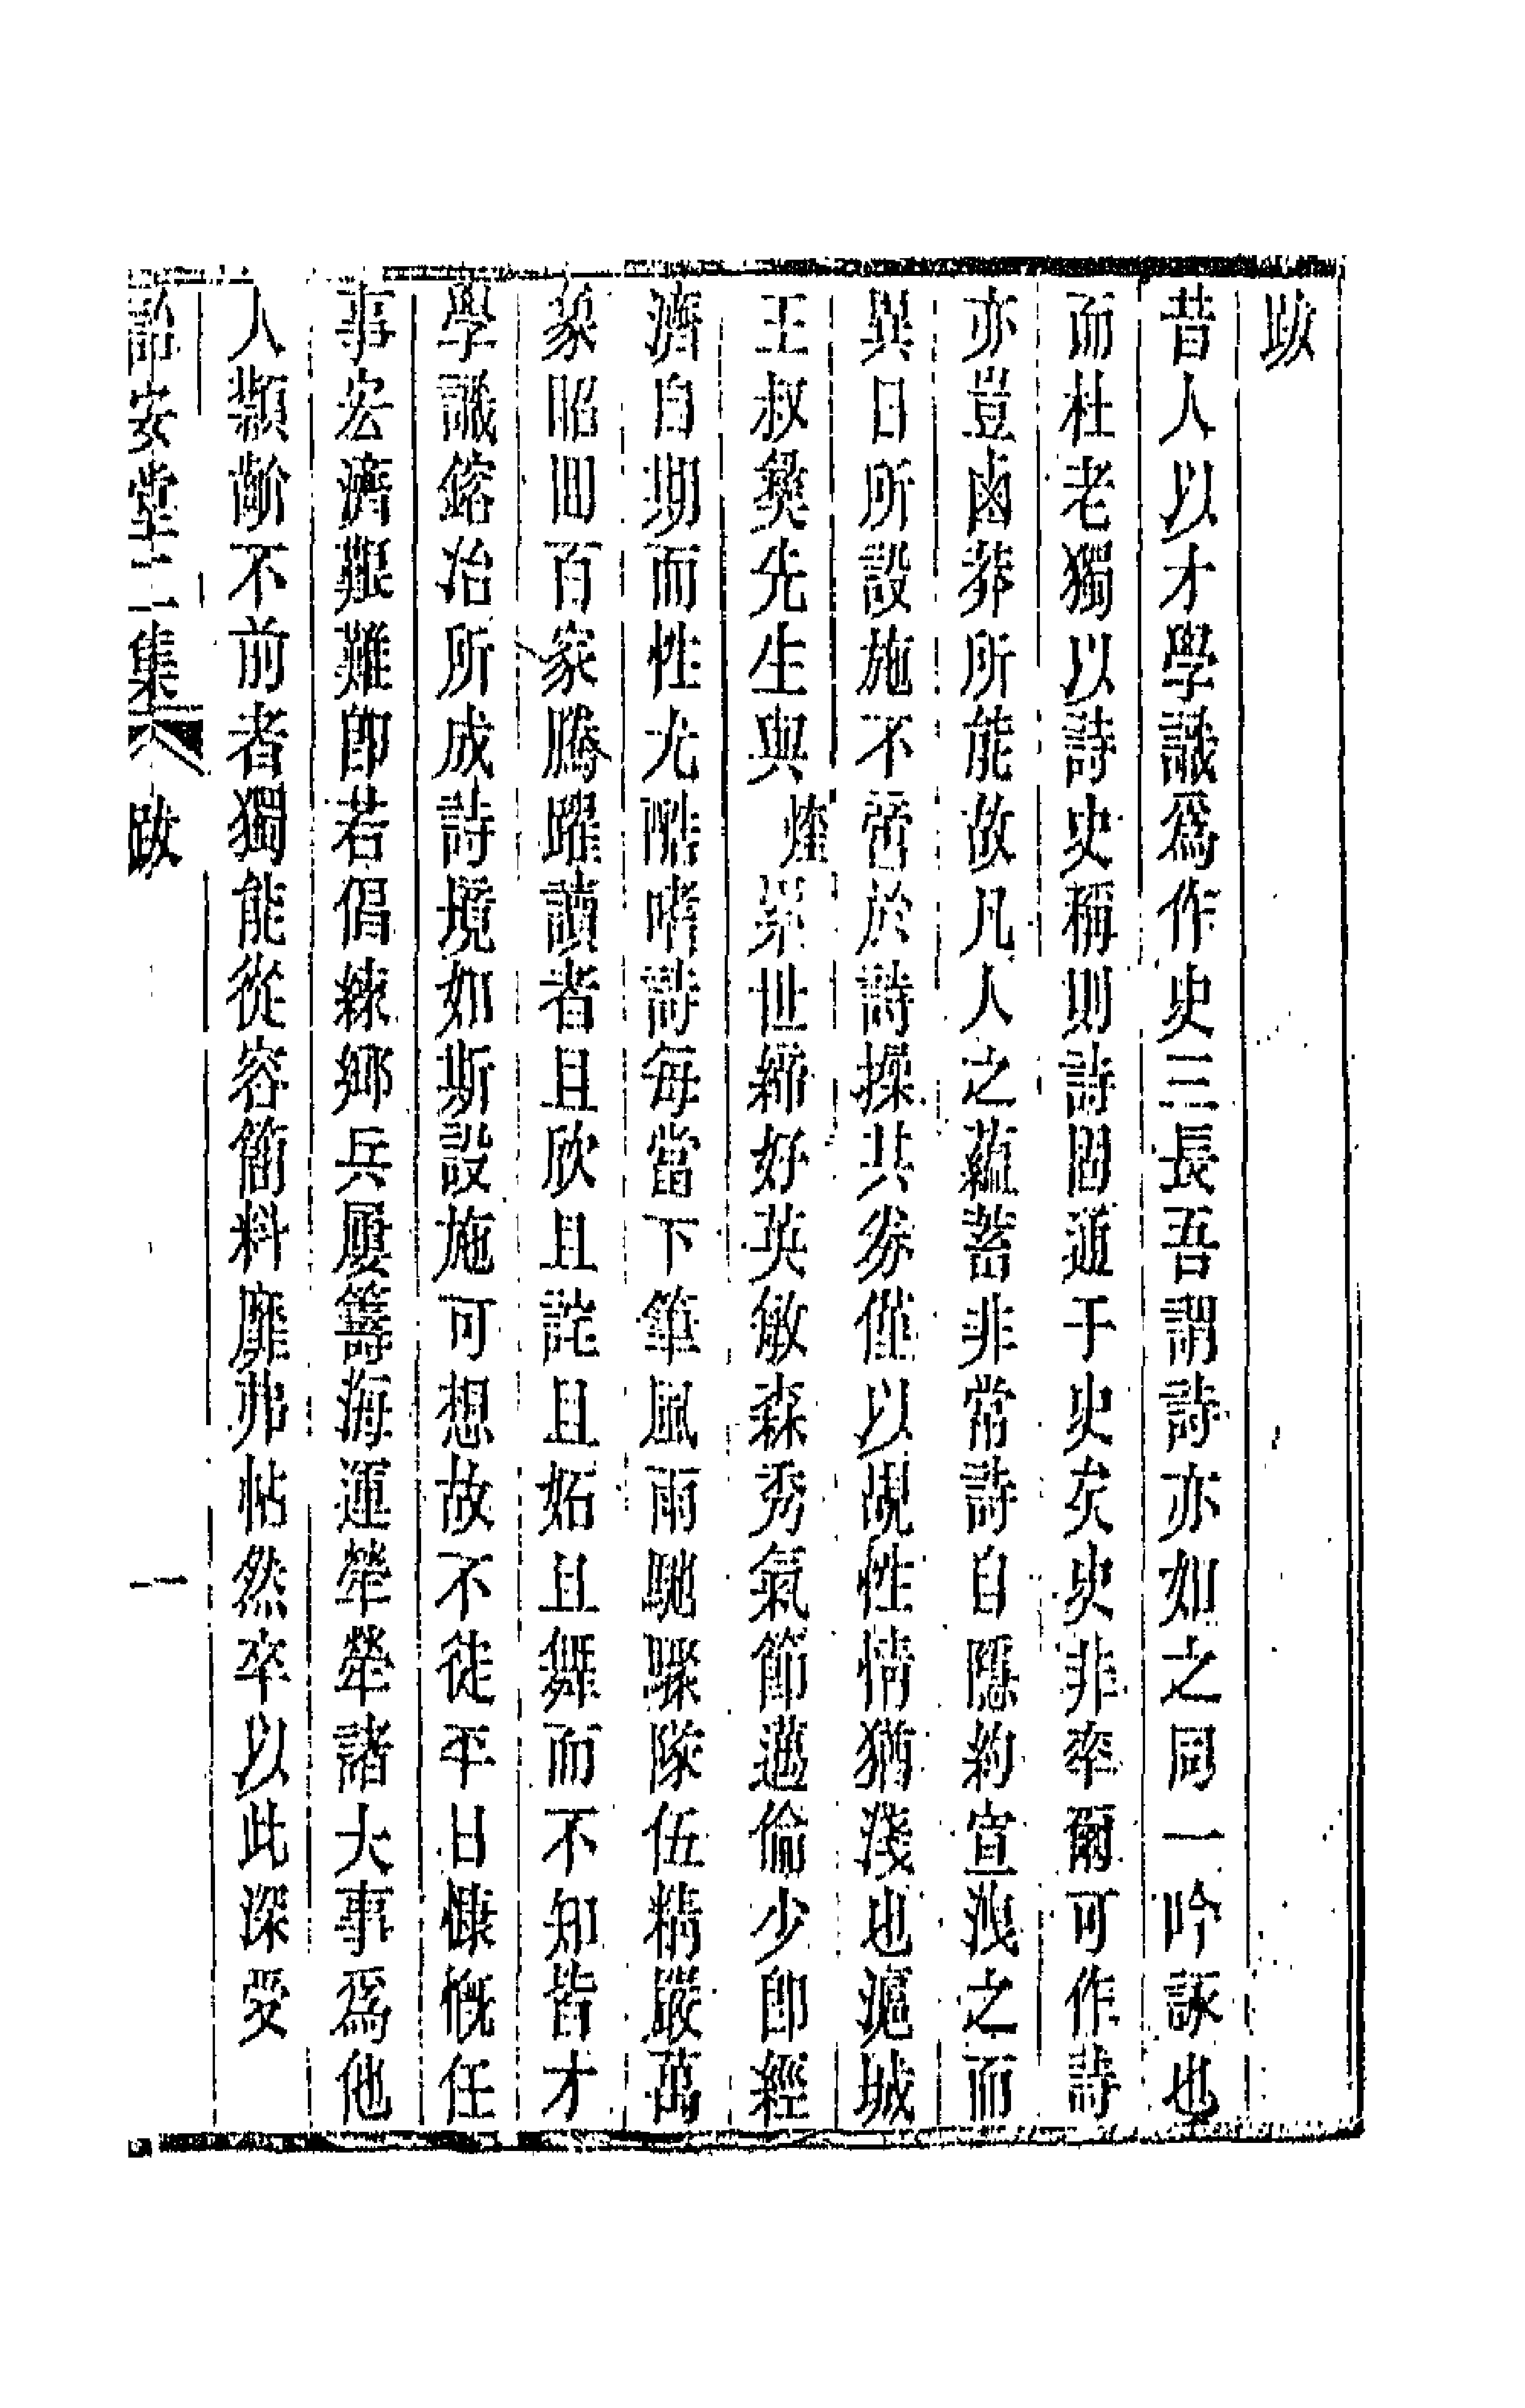 跋
昔人以才學識爲作史三長吾謂詩亦如之同一吟詠也
而杜老獨以詩史稱則詩固通于史矣史非率爾可作詩
亦豈鹵莽所能故凡人之蘊蓄非常詩自隱約宣洩之而
異日所設施不啻於詩操其劵僅以覘性情猶淺也滬城
王叔彝先生與煃累世締好英敏森秀氣節邁倫少即經
濟自期而性尤酷嗜詩每當下筆風雨馳驟隊伍精嚴萬
象昭回百家騰躍讀者且欣且詫且妬且舞而不知皆才
學識鎔冶所成詩境如斯設施可想故不徒平日慷慨任
事宏濟艱難即若倡練鄉兵屢籌海運犖犖諸大事爲他
人顙齘不前者獨能從容簡料靡弗帖然卒以此深受
詒安堂二集 跋 一